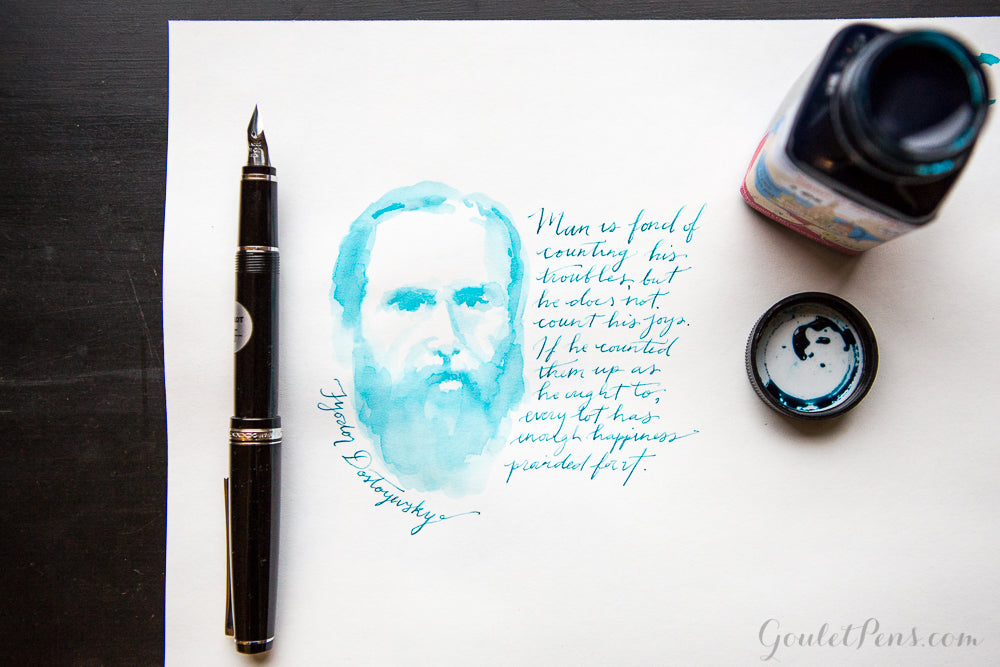 Man is fond of
counting his
troubles, but
he does not
count his joys.
If he counted
them up as
he ought to,
every lot has
enough happiness
provided for it.
Fyodor Dostoyevsky
GouletPens.com